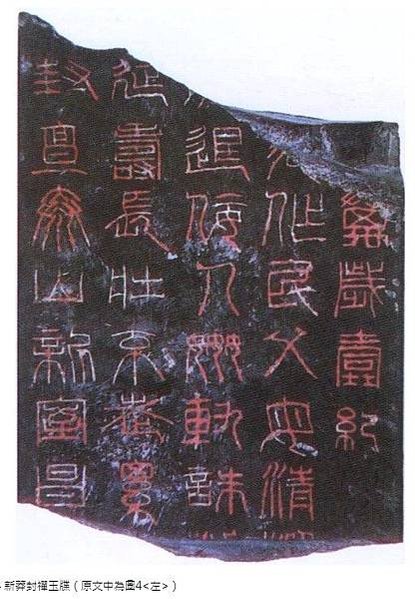 萬歲壹紀
作民父母清
退佞人姦軌誅
延壽長壯不老累
封亶泰山新室昌
新莽封禪玉牒（原文中為圖4<左>）